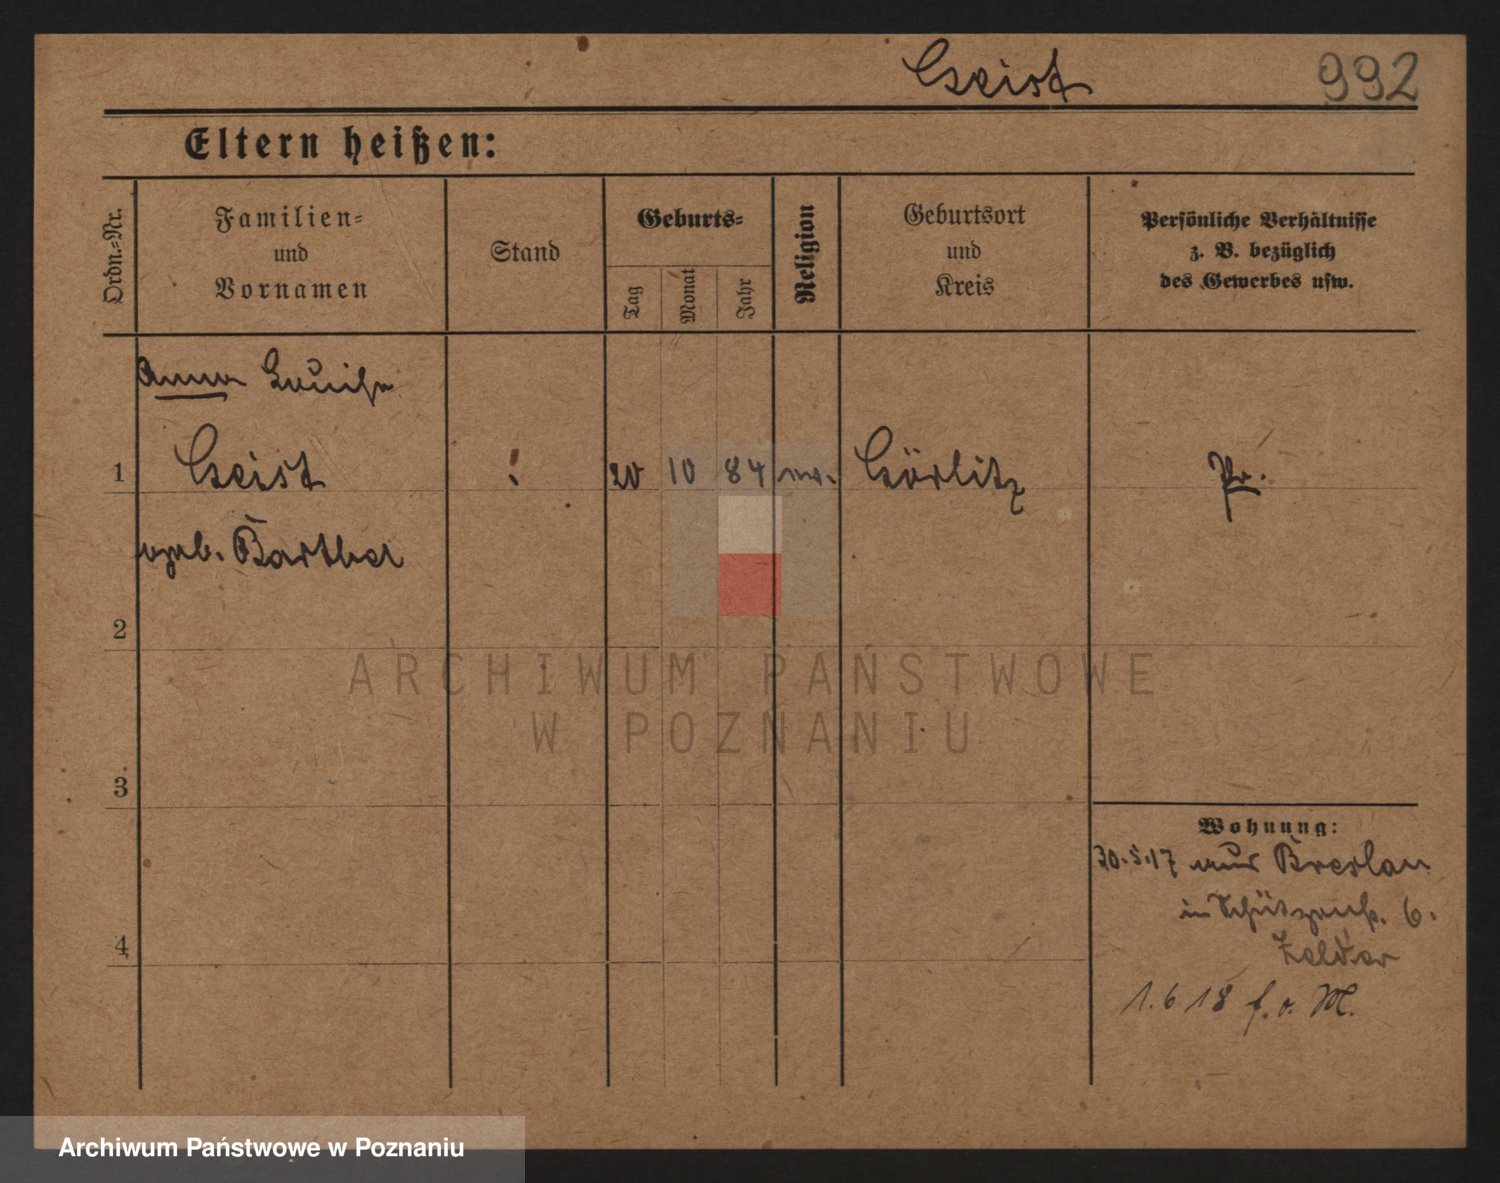 Geist 992
Eltern heißen:
Ordn.-Nr.
Familien-
und
Vornamen
Stand
Geburts-
Tag
Monat
Jahr
Religion
Geburtsort
und
Kreis
Persönliche Verhältnisse
z. B. bezüglich
des Gewerbes usw.
Anna Louise
1 Geist 20 10 84 Görlitz Pr.
geb. Barthel
2
ARCHIWUM PAŃSTWOWE
W POZNANIU
3
Wohnung:
30.5.17 aus Breslau
in Schützenstr. 6.
4
1.6 18 f. o. M.
Archiwum Państwowe w Poznaniu